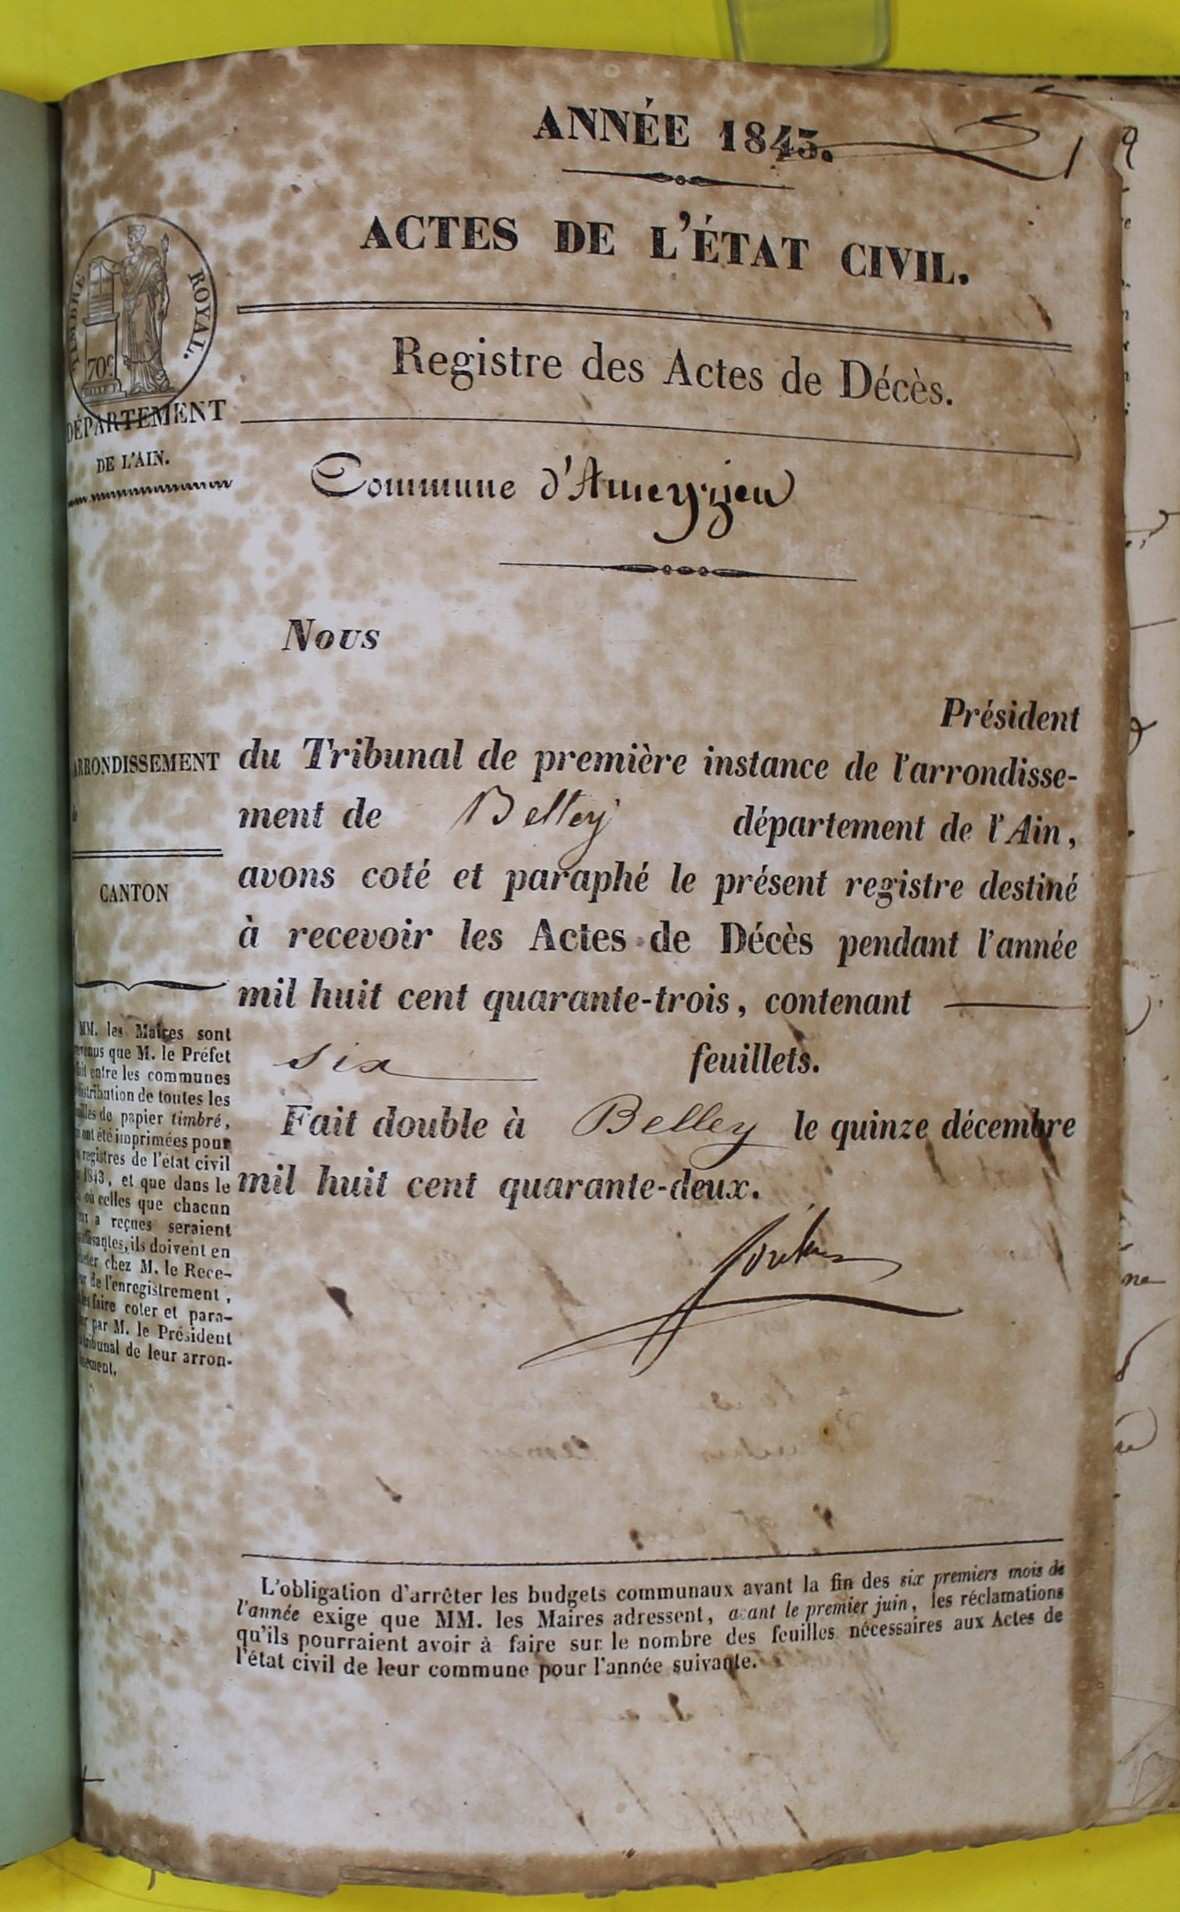 ANNÉE 1843.
ACTES DE L'ÉTAT CIVIL.
TIMBRE ROYAL.
70c
Registre des Actes de Décès.
DÉPARTEMENT
DE L'AIN.
Commune d'Ameyzieu
Nous
Président
ARRONDISSEMENT
du Tribunal de première instance de l'arrondisse-
ment de Belley département de l'Ain,
avons coté et paraphé le présent registre destiné
CANTON
à recevoir les Actes de Décès pendant l'année
mil huit cent quarante-trois, contenant
six feuillets.
Fait double à Belley le quinze décembre
mil huit cent quarante-deux.
MM. les Maires sont
que M. le Préfet
entre les communes
distribution de toutes les
de papier timbré,
ont été imprimées pour
registres de l'état civil
1843, et que dans le
où celles que chacun
a reçues seraient
ils doivent en
chez M. le Rece-
de l'enregistrement,
faire coter et para-
par M. le Président
tribunal de leur arron-
L'obligation d'arrêter les budgets communaux avant la fin des six premiers mois de
l'année exige que MM. les Maires adressent, avant le premier juin, les réclamations
qu'ils pourraient avoir à faire sur le nombre des feuilles nécessaires aux Actes de
l'état civil de leur commune pour l'année suivante.